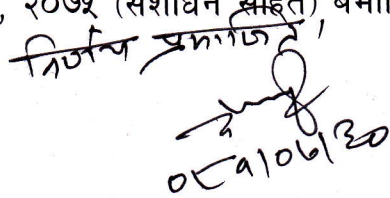 , २०७५ (संशोधन सहित) बमो
निर्णय प्रमाणित,
०८१/०७/३०